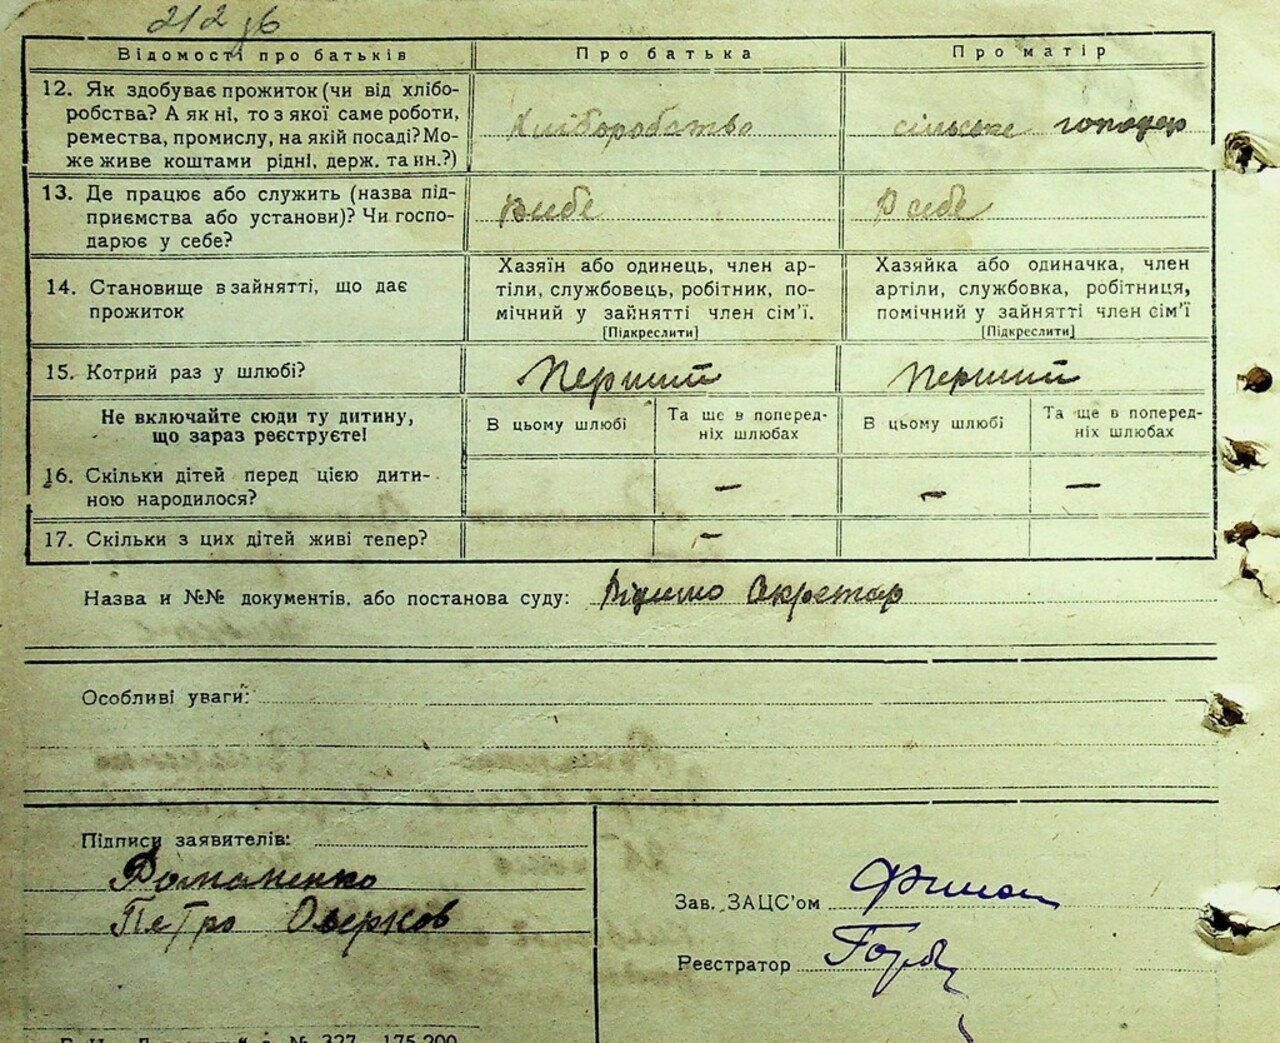 212 зб
Відомості про батьків Про батька Про матір
12. Як здобуває прожиток (чи від хлібо-
робства? А як ні, то з якої саме роботи,
ремества, промислу, на якій посаді? Мо-
же живе коштами рідні, держ. та ин.?)
Хліборобство сільське господар
13. Де працює або служить (назва під-
приємства або установи)? Чи госпо-
дарює у себе?
В себе В себе
14. Становище в зайнятті, що дає
прожиток
Хазяїн або одинець, член ар-
тіли, службовець, робітник, по-
мічний у зайнятті член сім'ї.
[Підкреслити]
Хазяйка або одиначка, член
артіли, службовка, робітниця,
помічний у зайнятті член сім'ї
[Підкреслити]
15. Котрий раз у шлюбі? Перший Перший
Не включайте сюди ту дитину,
що зараз реєструєте!
В цьому шлюбі
Та ще в поперед-
ніх шлюбах
В цьому шлюбі
Та ще в поперед-
ніх шлюбах
16. Скільки дітей перед цією дити-
ною народилося?
– – –
17. Скільки з цих дітей живі тепер? –
Назва и №№ документів, або постанова суду: Відомо Секретар
Особливі уваги:
Підписи заявителів:
Романенко
Петро Оверков
Зав. ЗАЦС'ом
Реєстратор Горб
№ 327 – 175.200